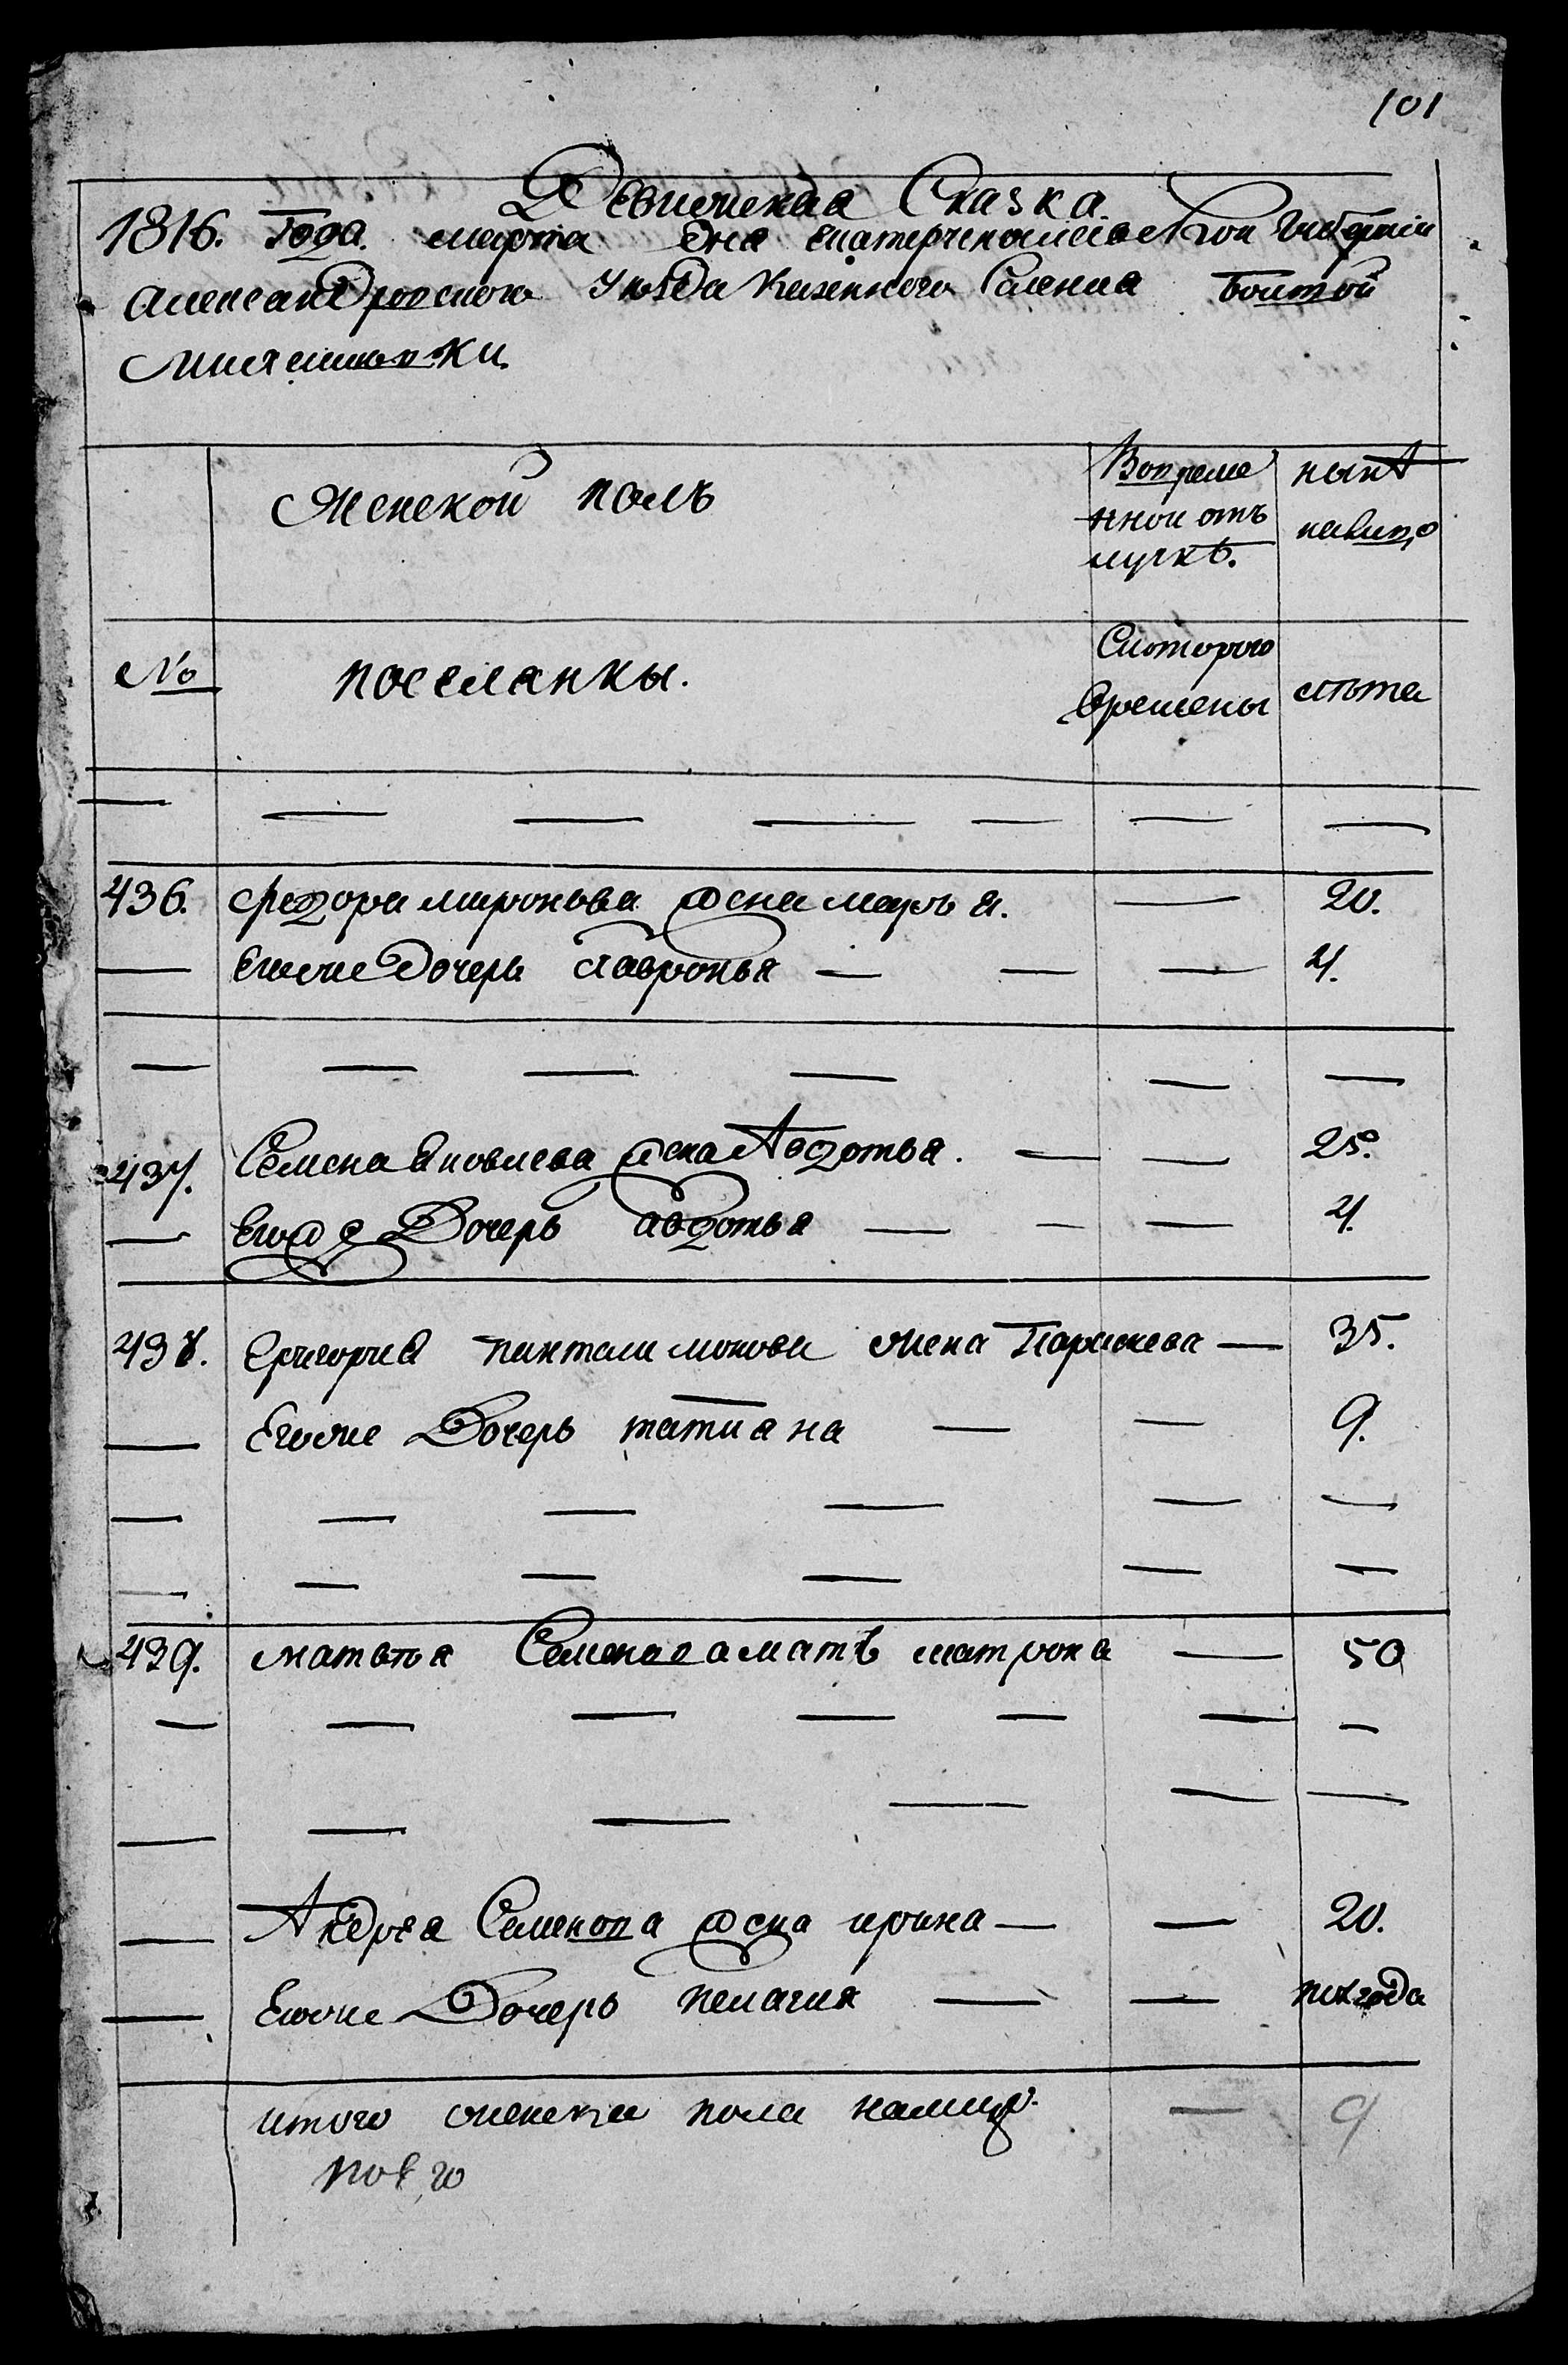 101
Ревижская Сказка
1816. Года марта дня екатеринославской губернии
александровского уезда Казенного Селения
женской полъ
Вовреме
нной отъ
лучкѣ.
нынѣ
налицо
№
поселянкы.
Скоторого
времены
лѣта
— — — — — — —
436. федора миронова жена маръя. — 20.
— егоже дочерь Хавронья — — — 4.
— — — — — —
437. Семена Яковлева жена Авдотья. — — 25.
— егоже Дочерь авдотья — — — 4.
438. Григория пинталимонова жена Параскева — 35.
— Егоже Дочерь татиана — — 9.
— — — — — —
— — — — — —
439. матвѣя Семенова матѣ матрона — 50
— — — — — — —
— — — — — —
— Андрея Семенова жена ирина — — 20.
— Егоже Дочерь пелагия — — полгода
итого женска пола налицо — 9